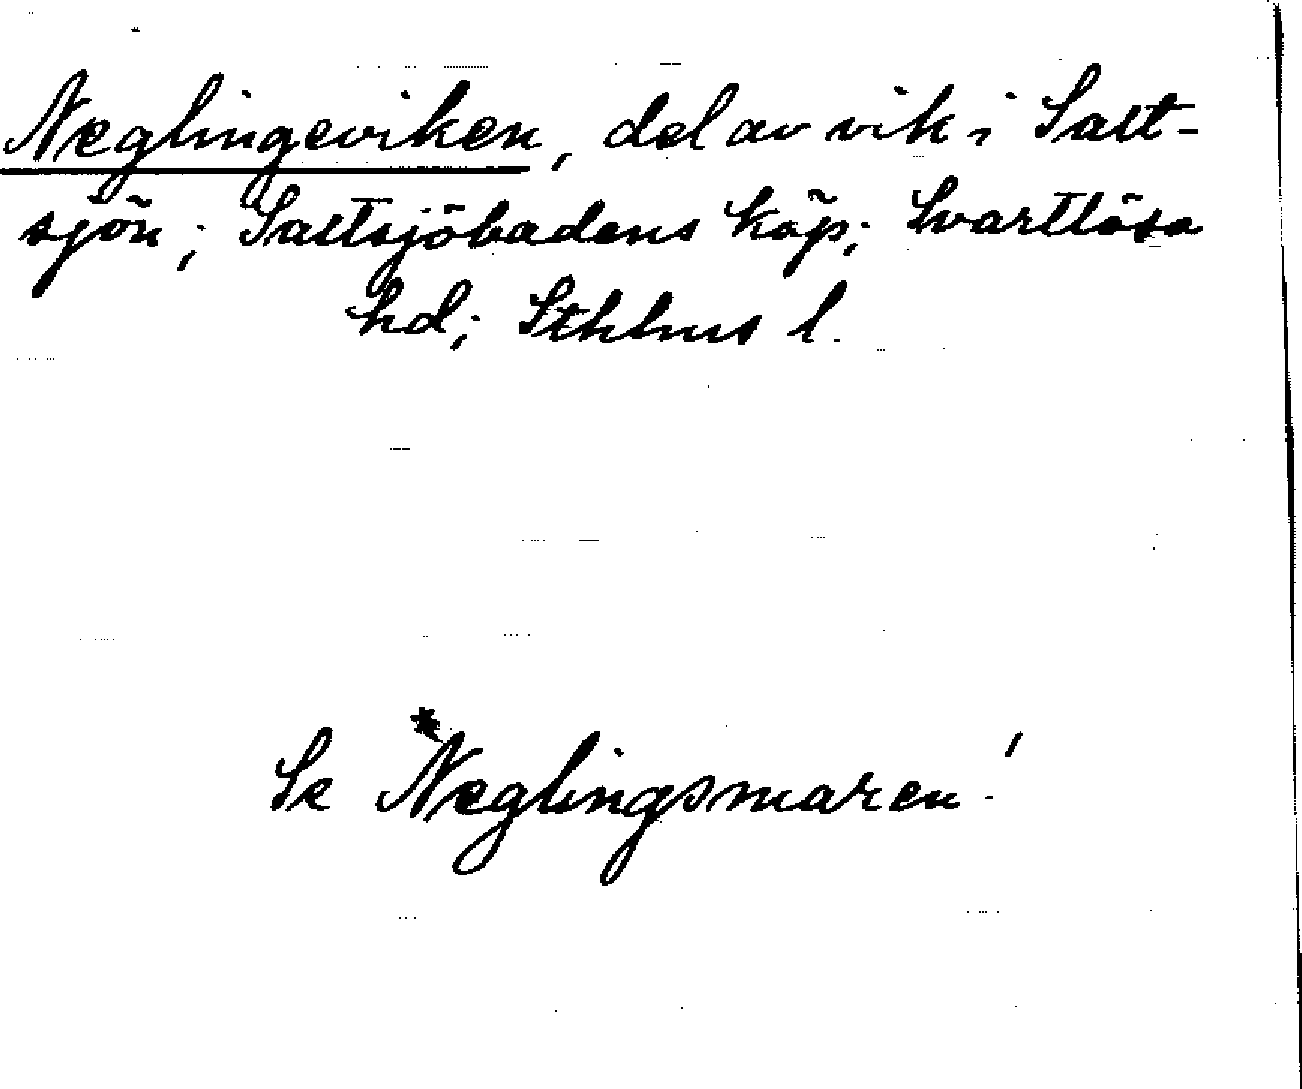 Neglingeviken, del av vik i Salt-
sjön; Saltsjöbadens köp; Svartlösa
hd; Sthlms l.
Se *Neglingsmaren!